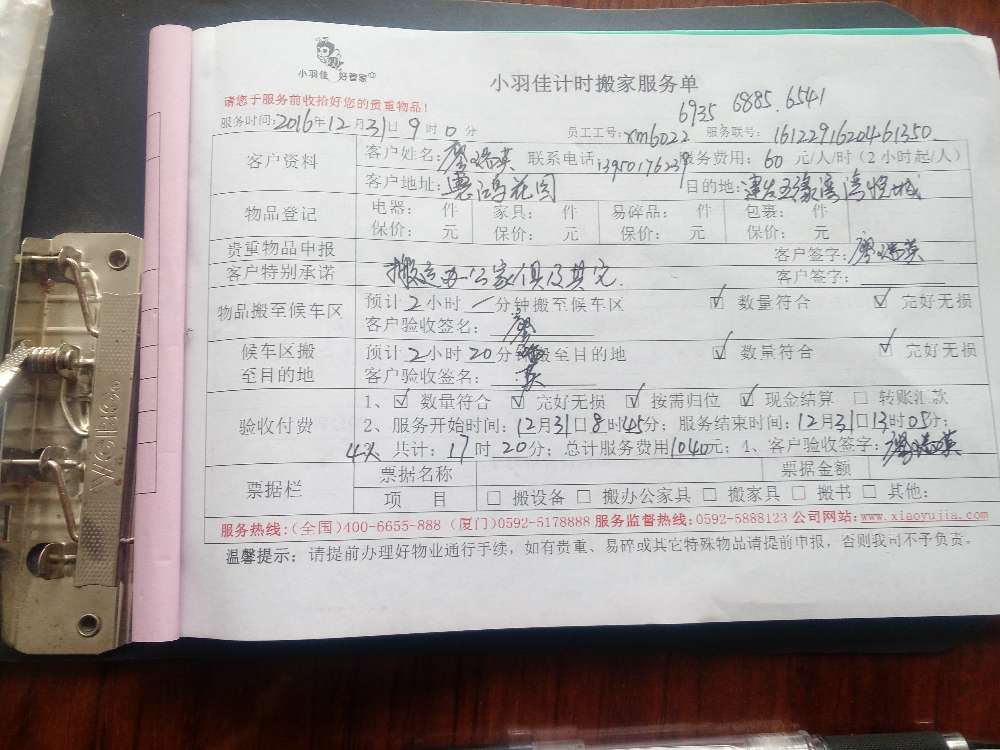 小羽佳 好管家
小羽佳计时搬家服务单
6935 6885.6541
请您于服务前收拾好您的贵重物品!
服务时间:2016年12月31日9时0分 员工工号:xm6022 服务联号:16122916204461350
客户资料 客户姓名:廖瑞英 联系电话:13950176239 服务费用:60元/人/时(2小时起/人)
客户地址:惠鸿花园 目的地:建发五缘湾湾悦城
物品登记 电器: 件 家具: 件 易碎品: 件 包裹: 件
保价: 元 保价: 元 保价: 元 保价: 元
贵重物品申报 客户签字:廖瑞英
客户特别承诺 搬运办公家俱及其它. 客户签字:
物品搬至候车区 预计2小时/分钟搬至候车区 ☑ 数量符合 ☑ 完好无损
客户验收签名:廖
候车区搬至目的地 预计2小时20分钟搬至目的地 ☑ 数量符合 ☑ 完好无损
客户验收签名:英
验收付费 1、☑ 数量符合 ☑ 完好无损 ☑ 按需归位 ☑ 现金结算 □ 转账汇款
2、服务开始时间:12月31日8时45分; 服务结束时间:12月31日13时05分;
4人 共计:17时20分; 总计服务费用1040元; 4、客户验收签字:廖瑞英
票据栏 票据名称 票据金额
项 目 □ 搬设备 □ 搬办公家具 □ 搬家具 □ 搬书 □ 其他:
服务热线:(全国)400-6655-888 (厦门)0592-5178888 服务监督热线:0592-5888123 公司网站:www.xiaoyujia.com
温馨提示: 请提前办理好物业通行手续, 如有贵重、易碎或其它特殊物品请提前申报, 否则我司不予负责。